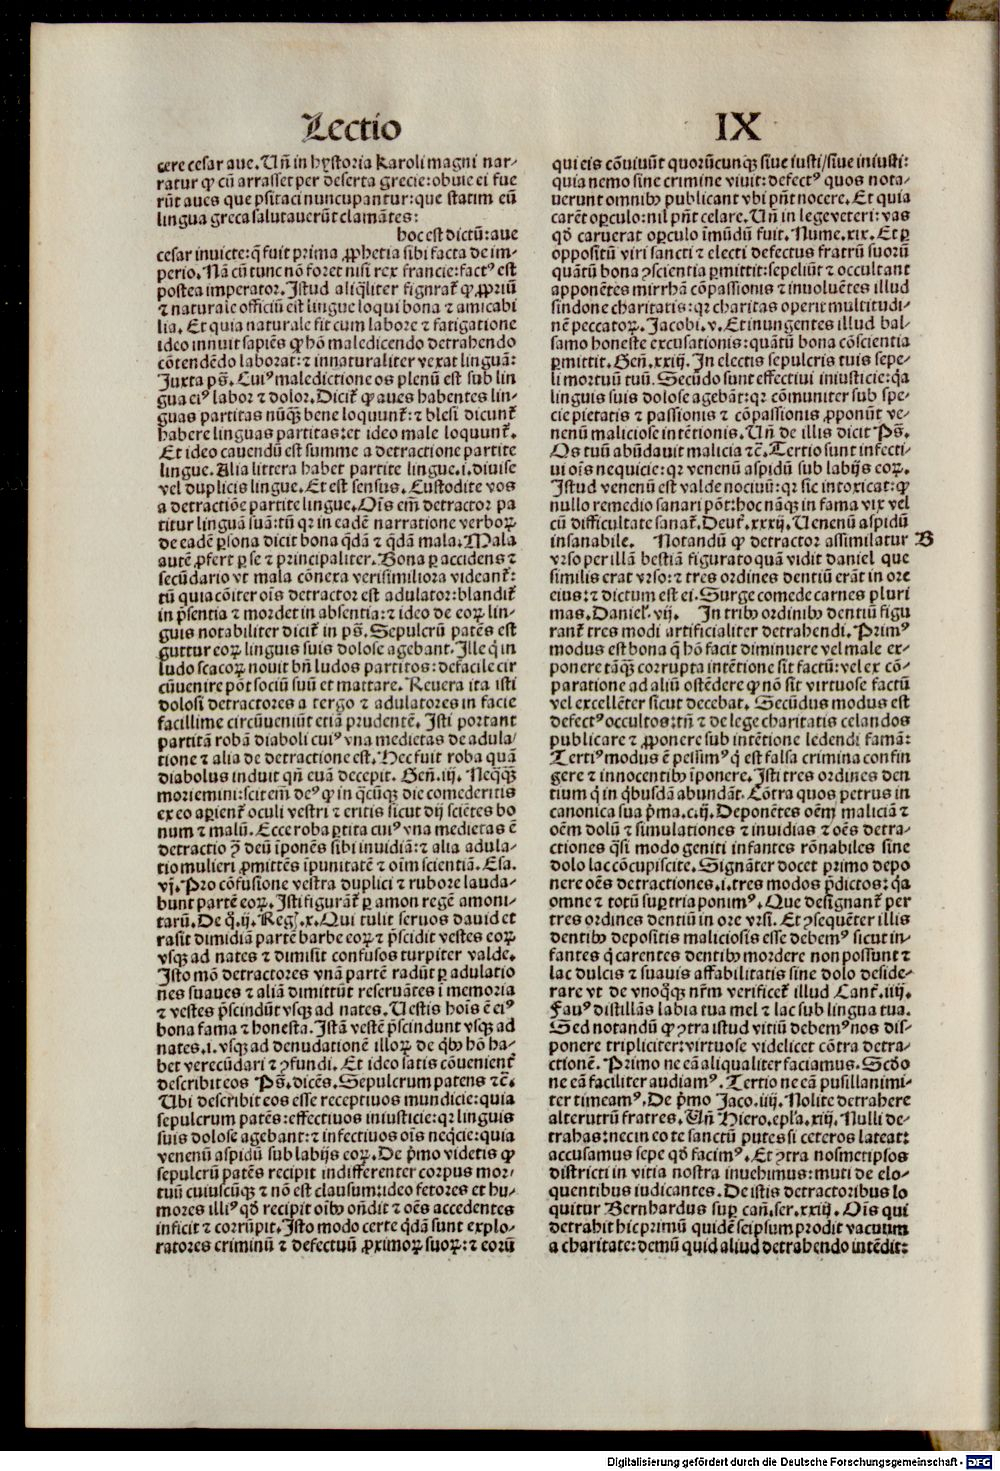 Lectio
IX
cere cesar aue. Uñ in hystoria karoli magni nar-
ratur ꝙ cū arrasset per deserta grecie: obuie ei fue
rūt aues que psitaci nuncupantur: que statim eū
lingua greca salutauerūt clamātes:
hoc est dictū: aue
cesar inuicte: q̄ fuit prima ꝓphetia sibi facta de im-
perio. Nā cū tunc nō foret nisi rex francie: fact⁹ est
postea imperator. Istud aliq̄liter figurat̄ ꝙ ꝓpriū
⁊ naturale officiū est lingue loqui bona ⁊ amicabi
lia. Et quia naturale fit cum labore ⁊ fatigatione
ideo innuit sapiēs ꝙ hō maledicendo detrahendo
cōtendēdo laborat: ⁊ innaturaliter vexat linguā:
Juxta ps̄. Cui⁹ maledictione os plenū est sub lin
gua ei⁹ labor ⁊ dolor. Dicit̄ ꝙ aues habentes lin-
guas partitas nūq̄ꝫ bene loquunt̄: ⁊ blesi dicunt̄
habere linguas partitas: et ideo male loquunt̄.
Et ideo cauendū est summe a detractione partite
lingue. Alia littera habet partite lingue .i. diuise
vel duplicis lingue. Et est sensus. Custodite vos
a detractiōe partite lingue. Oīs em̄ detractor pa
titur linguā suā: tū qꝛ in eadē narratione verboꝝ
de eadē ꝑsona dicit bona q̄dā ⁊ q̄dā mala. Mala
autē ꝓfert ꝑ se ⁊ principaliter. Bona ꝑ accidens ⁊
secūdario vt mala cōnexa verisimiliora videant̄:
tū quia cōiter oīs detractor est adulator: blandit̄
in p̄sentia ⁊ mordet in absentia: ⁊ ideo de eoꝝ lin-
guis notabiliter dicit̄ in ps̄. Sepulcrū patēs est
guttur eoꝝ linguis suis dolose agebant. Ille q̄ in
ludo scacoꝝ nouit bn̄ ludos partitos: de facile cir
cūuenire pōt sociū suū et mattare. Reuera ita isti
dolosi detractores a tergo ⁊ adulatores in facie
facillime circūueniūt etiā prudentē. Isti portant
partitā robā diaboli cui⁹ vna medietas de adula/
tione ⁊ alia de detractione est. Hec fuit roba quā
diabolus induit qn̄ euā decepit. Geñ. iij. Neq̄q̄ꝫ
moriemini: scit em̄ de⁹ ꝙ in q̄cūqꝫ die comederitis
ex eo aꝑient̄ oculi vestri ⁊ eritis sicut dij sciētes bo
num ⁊ malū. Ecce roba ꝑtita cui⁹ vna medietas ē
detractio ꝯ deū īponēs sibi inuidiā: ⁊ alia adula-
tio mulieri ꝓmittēs īpunitatē ⁊ oīm scientiā. Esa.
vj. Pro cōfusione vestra duplici ⁊ rubore lauda-
bunt partē eoꝝ. Isti figurāt̄ ꝑ amon regē amoni-
tarū. De q̄. ij. Reg. x. Qui tulit seruos dauid et
rasit dimidiā partē barbe eoꝝ ⁊ p̄scidit vestes eoꝝ
vsqꝫ ad nates ⁊ dimisit confusos turpiter valde.
Isto mō detractores vnā partē radūt ꝑ adulatio
nes suaues ⁊ aliā dimittūt reseruātes ī memoria
⁊ vestes p̄scindūt vsqꝫ ad nates. Uestis hoīs ē ei⁹
bona fama ⁊ honesta. Istā vestē p̄scindunt vsqꝫ ad
nates .i. vsqꝫ ad denudationē illoꝝ de q̄bꝰ hō ha-
bet verecūdari ⁊ ꝯfundi. Et ideo satis cōuenient̄
describit eos Ps̄. dicēs. Sepulcrum patens ⁊c̄.
Ubi describit eos esse receptiuos mundicie: quia
sepulcrum patēs: effectiuos iniusticie: qꝛ linguis
suis dolose agebant: ⁊ infectiuos oīs neq̄cie: quia
venenū aspidū sub labijs eoꝝ. De p̄mo videtis ꝙ
sepulcrū patēs recipit indifferenter corpus mor-
tuū cuiuscūqꝫ ⁊ nō est clausum: ideo fetores et hu-
mores illi⁹ qd̄ recipit oībꝰ on̄dit ⁊ oēs accedentes
inficit ⁊ corrūpit. Isto modo certe q̄dā sunt explo-
ratores criminū ⁊ defectuū ꝓximoꝝ suoꝝ: ⁊ eorū
qui eis cōuiuūt quorūcunqꝫ siue iusti/siue iniusti:
quia nemo sine crimine viuit: defect⁹ quos nota-
uerunt omnibꝰ publicant vbi pn̄t nocere. Et quia
carēt oꝑculo: nil pn̄t celare. Uñ in lege veteri: vas
qd̄ caruerat oꝑculo īmūdū fuit. Nume. xix. Et ꝑ
oppositū viri sancti ⁊ electi defectus fratrū suorū
quātū bona ꝯscientia ꝑmittit: sepeliūt ⁊ occultant
apponētes mirrhā cōpassionis ⁊ inuoluētes illud
sindone charitatis: qꝛ charitas operit multitudi-
nē peccatoꝝ. Jacobi. v. Et inungentes illud bal-
samo honeste excusationis: quātū bona cōscientia
ꝑmittit. Geñ. xxiij. In electis sepulcris tuis sepe-
li mortuū tuū. Secūdo sunt effectiui iniusticie: q̄a
linguis suis dolose agebāt: qꝛ cōmuniter sub spe-
cie pietatis ⁊ passionis ⁊ cōpassionis ꝓponūt ve-
nenū maliciose intētionis. Uñ de illis dicit Ps̄.
Os tuū abūdauit malicia ⁊c̄. Tertio sunt infecti-
ui oīs nequicie: qꝛ venenū aspidū sub labijs eoꝝ.
Istud venenū est valde nociuū: qꝛ sic intoxicat: ꝙ
nullo remedio sanari pōt: hoc nāqꝫ in fama vix vel
cū difficultate sanat̄. Deut̄. xxxij. Uenenū aspidū
insanabile. Notandū ꝙ detractor assimilatur
B
vrso per illā bestiā figurato quā vidit daniel que
similis erat vrso: ⁊ tres ordines dentiū erāt in ore
eius: ⁊ dictum est ei. Surge comede carnes pluri
mas. Daniel. vij. In tribꝰ ordinibꝰ dentiū figu
rant̄ tres modi artificialiter detrahendi. Prim⁹
modus est bona q̄ hō facit diminuere vel male ex-
ponere tāq̄ꝫ corrupta intētione sit factū: vel ex cō-
paratione ad aliū ostēdere ꝙ nō sit virtuose factū
vel excellēter sicut decebat. Secūdus modus est
defect⁹ occultos: tn̄ ⁊ de lege charitatis celandos
publicare ⁊ ꝓponere sub intētione ledendi famā:
Terti⁹ modus ē pessim⁹ q̄ est falsa crimina confin
gere ⁊ innocentibꝰ īponere. Isti tres ordines den
tium q̄ in q̄busdā abundāt. Cōtra quos petrus in
canonica sua p̄ma. c. ij. Deponētes oēm maliciā ⁊
oēm dolū ⁊ simulationes ⁊ inuidias ⁊ oēs detra-
ctiones q̄si modo geniti infantes rōnabiles sine
dolo lac cōcupiscite. Signāter docet primo depo
nere oēs detractiones .i. tres modos p̄dictos: q̄a
omne ⁊ totū suꝑ tria ponim⁹. Que designant̄ per
tres ordines dentiū in ore vrsi. Et ꝯsequēter illis
dentibꝰ depositis maliciosis esse debem⁹ sicut in-
fantes q̄ carentes dentibꝰ mordere non possunt ⁊
lac dulcis ⁊ suauis affabilitatis sine dolo deside-
rare vt de vnoq̄qꝫ nr̄m verificet̄ illud Cant̄. iiij.
Fau⁹ distillās labia tua mel ⁊ lac sub lingua tua.
Sed notandū ꝙ ꝯtra istud vitiū debem⁹ nos dis-
ponere tripliciter: virtuose videlicet cōtra detra-
ctionē. Primo ne eā aliqualiter faciamus. Scd̄o
ne eā faciliter audiam⁹. Tertio ne eā pusillanimi-
ter timeam⁹. De p̄mo Jaco. iiij. Nolite detrahere
alterutrū fratres. Uñ Hiero. epl̄a. xiij. Nulli de-
trahas: nec in eo te sanctū putes si ceteros lateat:
accusamus sepe qd̄ facim⁹. Et ꝯtra nosmetipsos
districti in vitia nostra inuehimus: muti de elo-
quentibus iudicantes. De istis detractoribus lo
quitur Bernhardus suꝑ cañ. ser. xxiij. Oīs qui
detrahit hic primū quidē seipsum prodit vacuum
a charitate: demū quid aliud detrahendo intēdit:
Digitalisierung gefördert durch die Deutsche Forschungsgemeinschaft - DFG